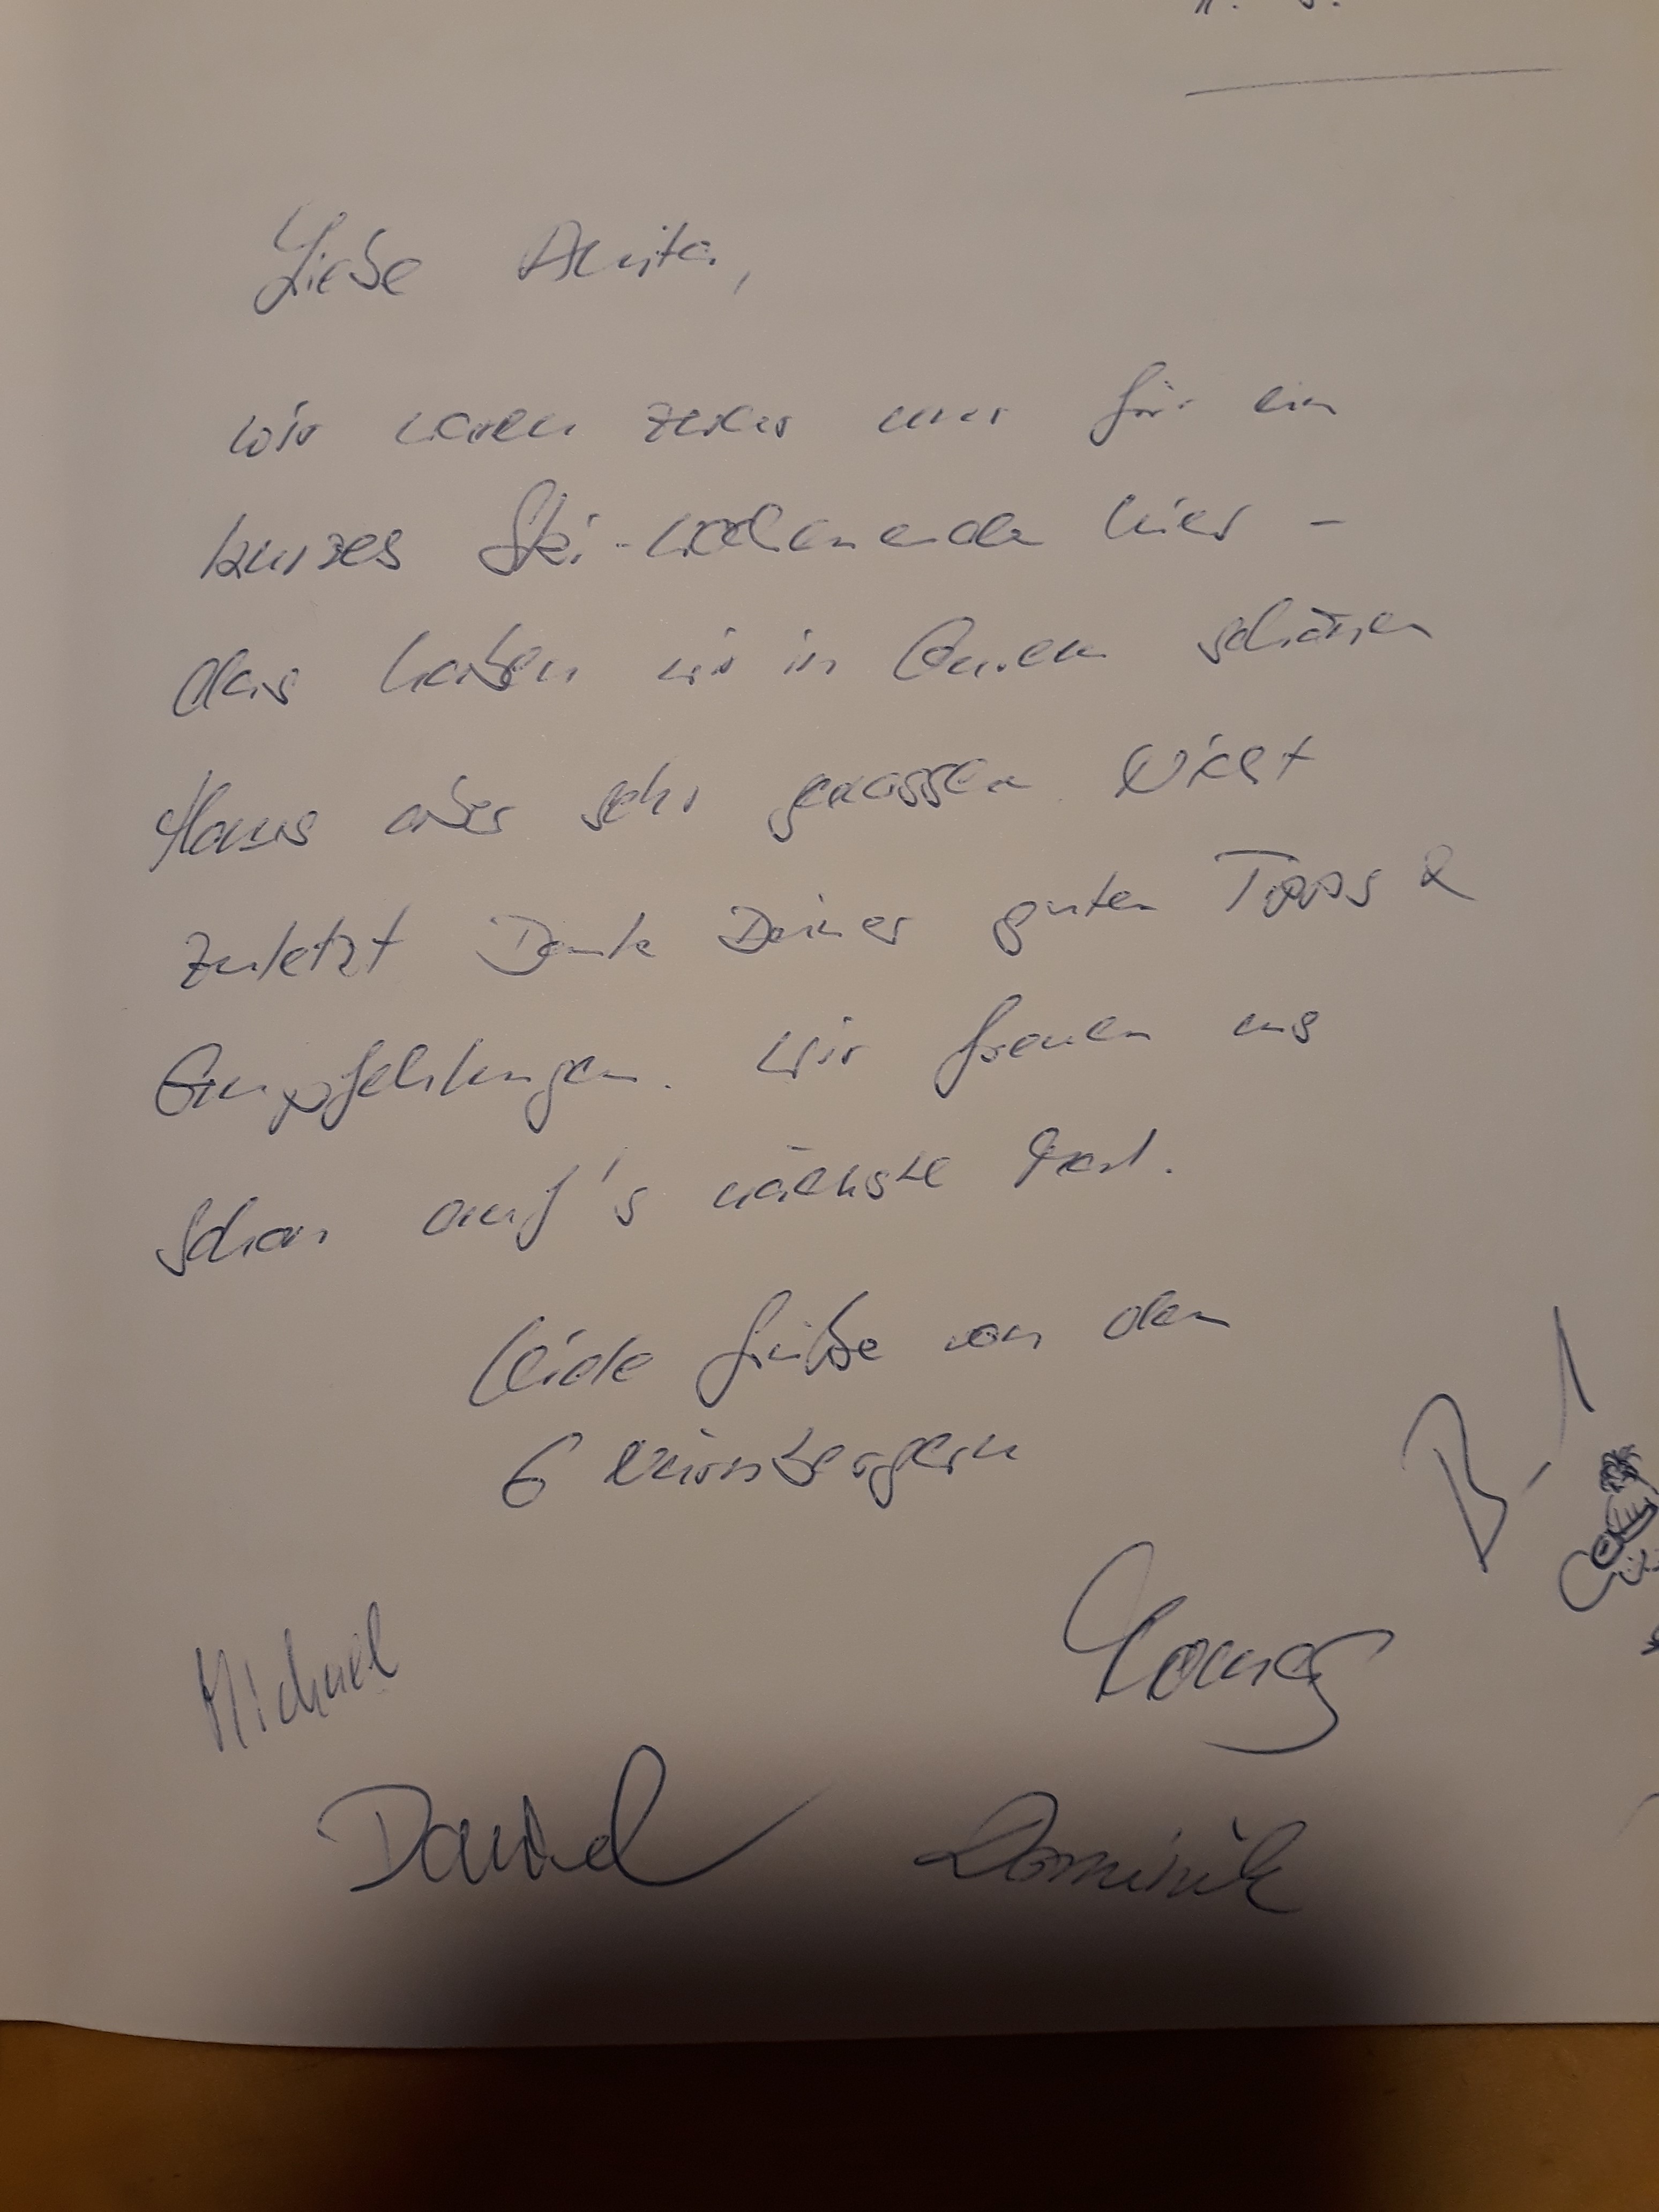 Liebe Anita,
wir waren zwar nur für ein
kurzes Ski-Wochenende hier -
das haben wir in Eurem schönen
Haus aber sehr genossen. Nicht
zuletzt Dank Deiner guten Tipps &
Empfehlungen. Wir freuen uns
schon auf's nächste Mal.
Viele Grüße von den
6 Nürnbergern
Michael
Daniel Dominik